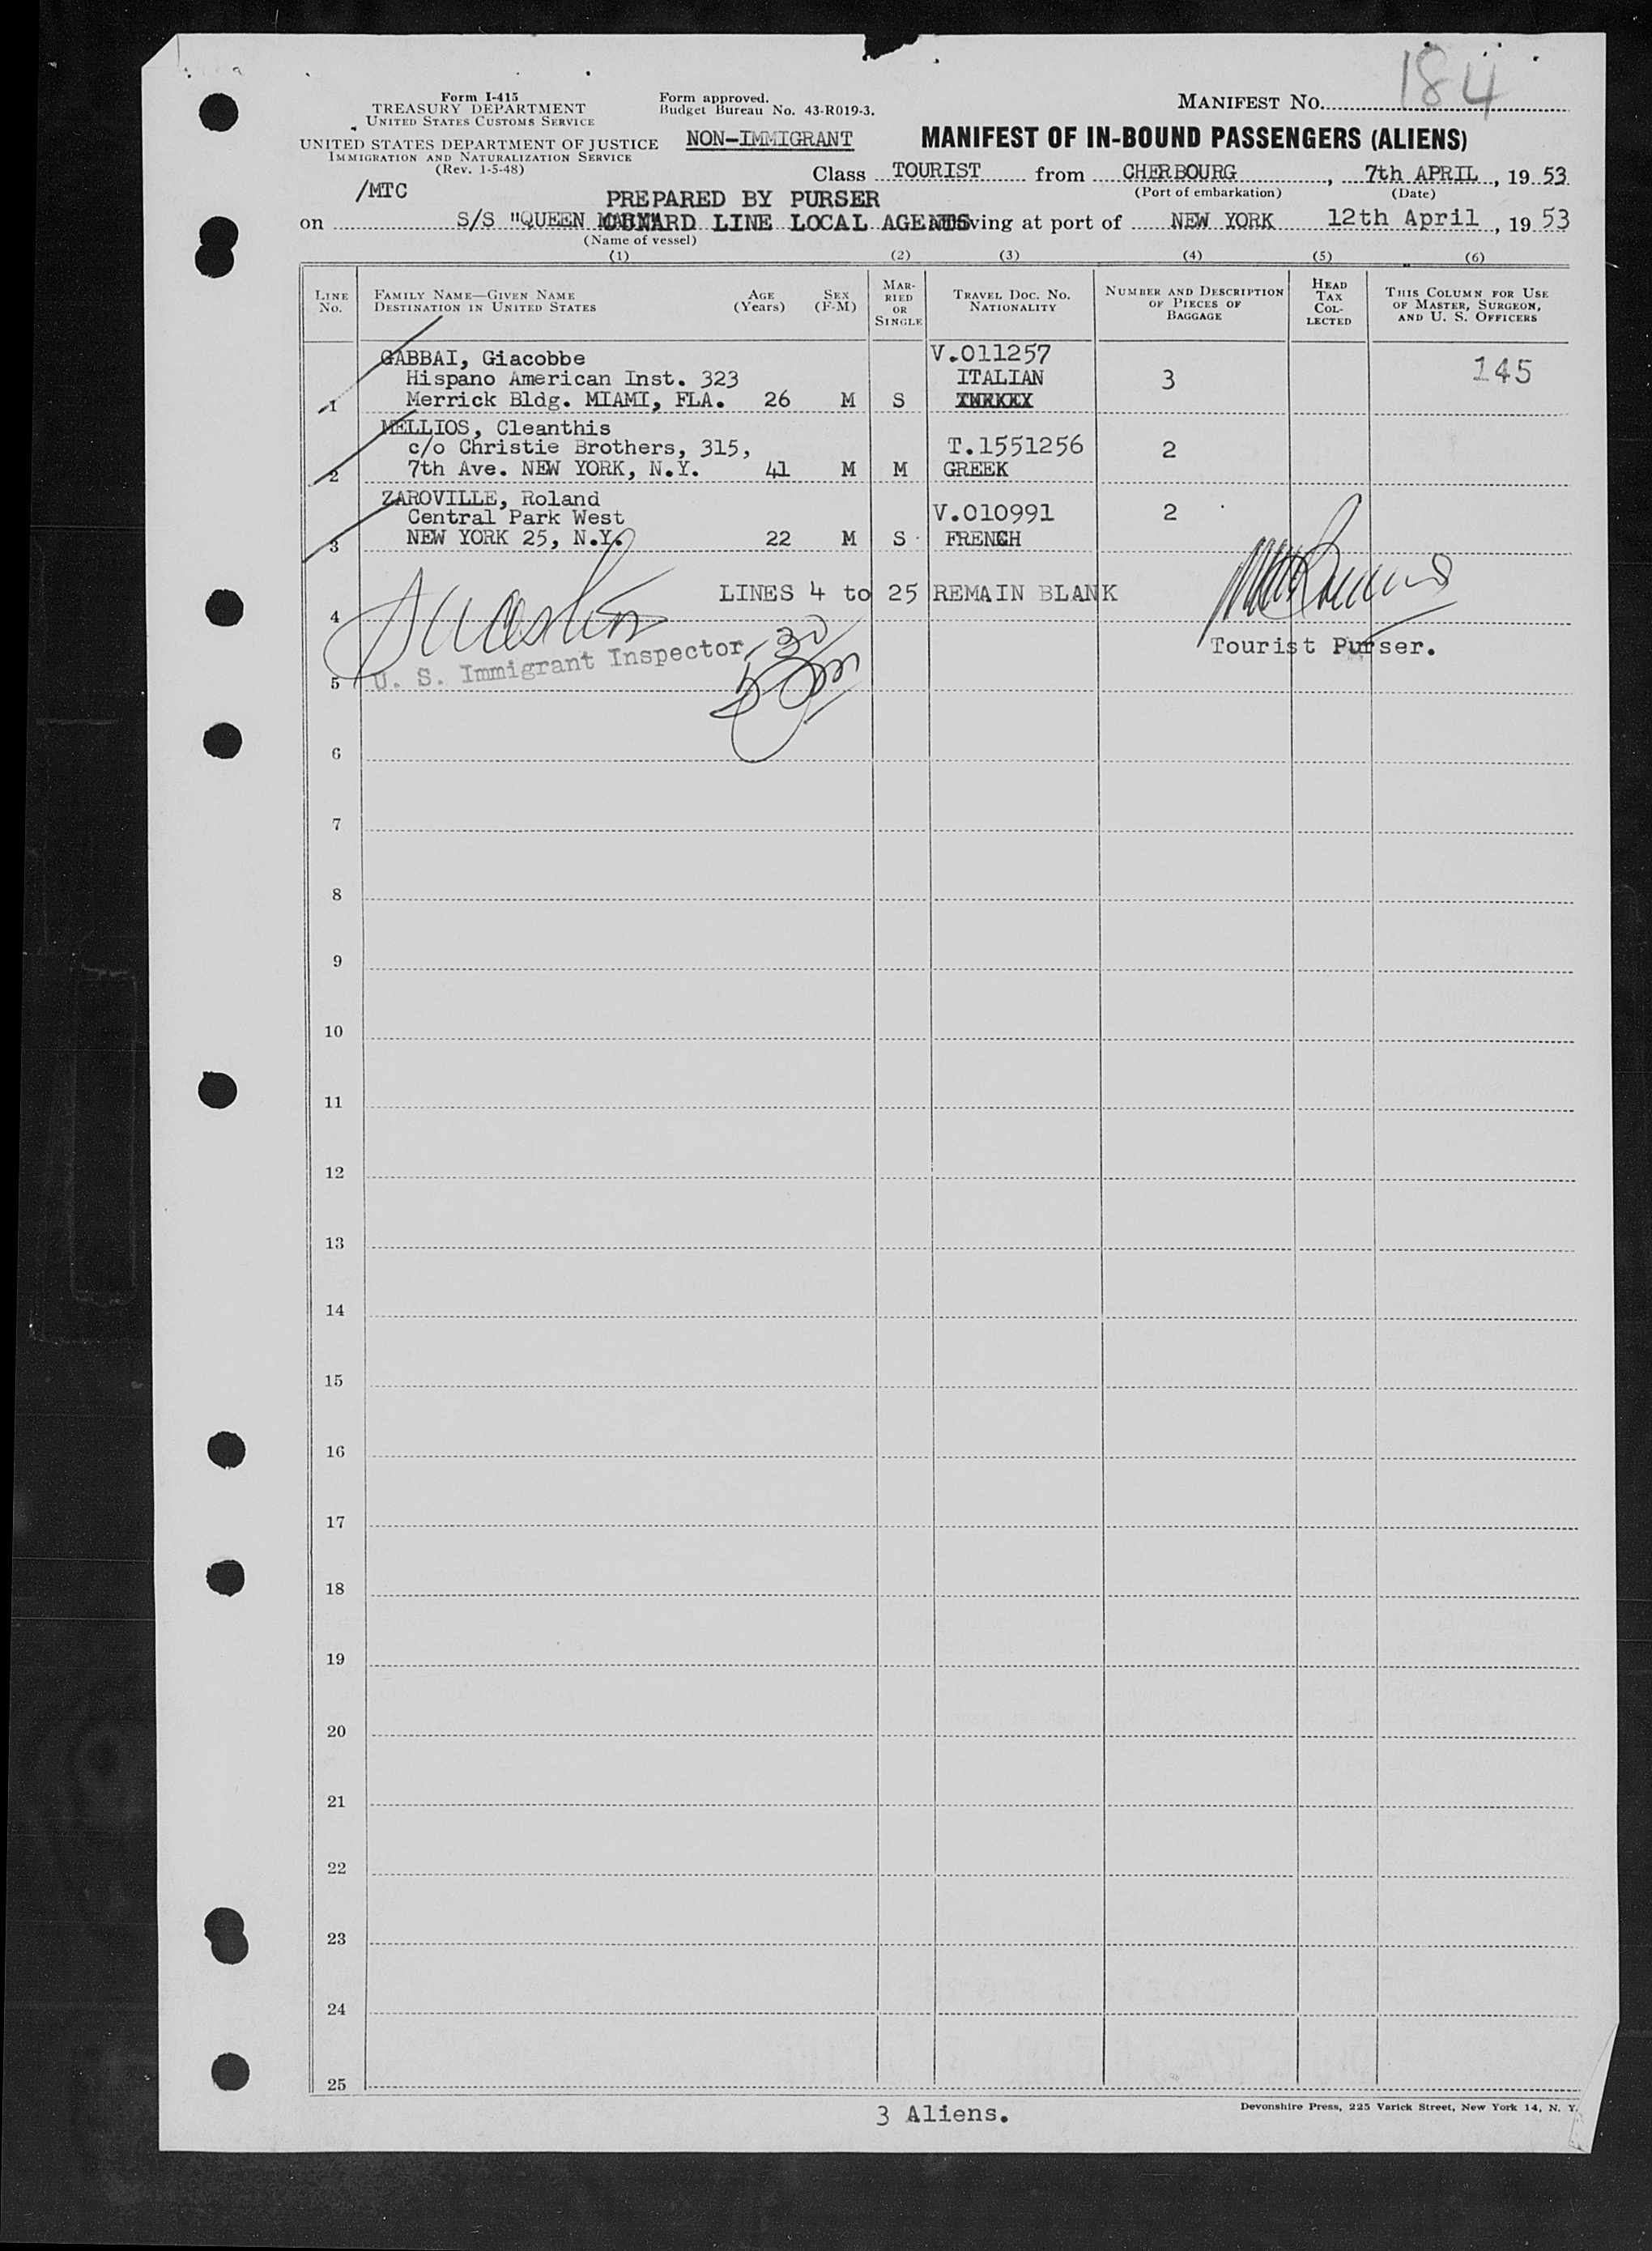 184
Form I-415
TREASURY DEPARTMENT
UNITED STATES CUSTOMS SERVICE
UNITED STATES DEPARTMENT OF JUSTICE
IMMIGRATION AND NATURALIZATION SERVICE
(Rev. 1-5-48)
/MTC
Form approved.
Budget Bureau No. 43-R019-3.
NON-IMMIGRANT
MANIFEST NO.
MANIFEST OF IN-BOUND PASSENGERS (ALIENS)
Class TOURIST from CHERBOURG, 7th APRIL, 19 53
(Port of embarkation) (Date)
PREPARED BY PURSER
CUNARD LINE LOCAL AGENTS
on S/S "QUEEN MARY" arriving at port of NEW YORK 12th April, 19 53
(Name of vessel)
(1) (2) (3) (4) (5) (6)
LINE NO. FAMILY NAME—GIVEN NAME DESTINATION IN UNITED STATES AGE (Years) SEX (F-M) MARRIED OR SINGLE TRAVEL DOC. NO. NATIONALITY NUMBER AND DESCRIPTION OF PIECES OF BAGGAGE HEAD TAX COLLECTED THIS COLUMN FOR USE OF MASTER, SURGEON, AND U. S. OFFICERS
GABBAI, Giacobbe V.011257
Hispano American Inst. 323 ITALIAN 3 145
1 Merrick Bldg. MIAMI, FLA. 26 M S
MELLIOS, Cleanthis
c/o Christie Brothers, 315, T.1551256 2
2 7th Ave. NEW YORK, N.Y. 41 M M GREEK
ZAROVILLE, Roland
Central Park West V.010991 2
3 NEW YORK 25, N.Y. 22 M S FRENCH
LINES 4 to 25 REMAIN BLANK
4
Tourist Purser.
U. S. Immigrant Inspector
5
6
7
8
9
10
11
12
13
14
15
16
17
18
19
20
21
22
23
24
25
3 Aliens.
Devonshire Press, 225 Varick Street, New York 14, N. Y.